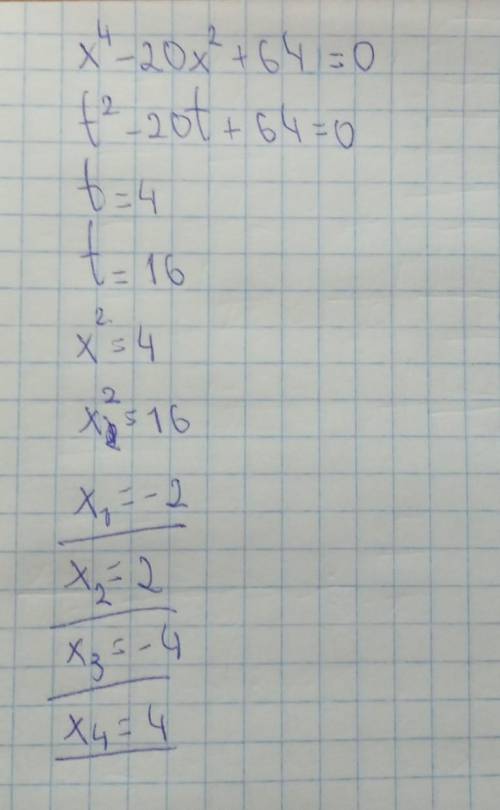 x⁴-20x²+64=0
t²-20t+64=0
t=4
t=16
x²=4
x²=16
x₁=-2
x₂=2
x₃=-4
x₄=4